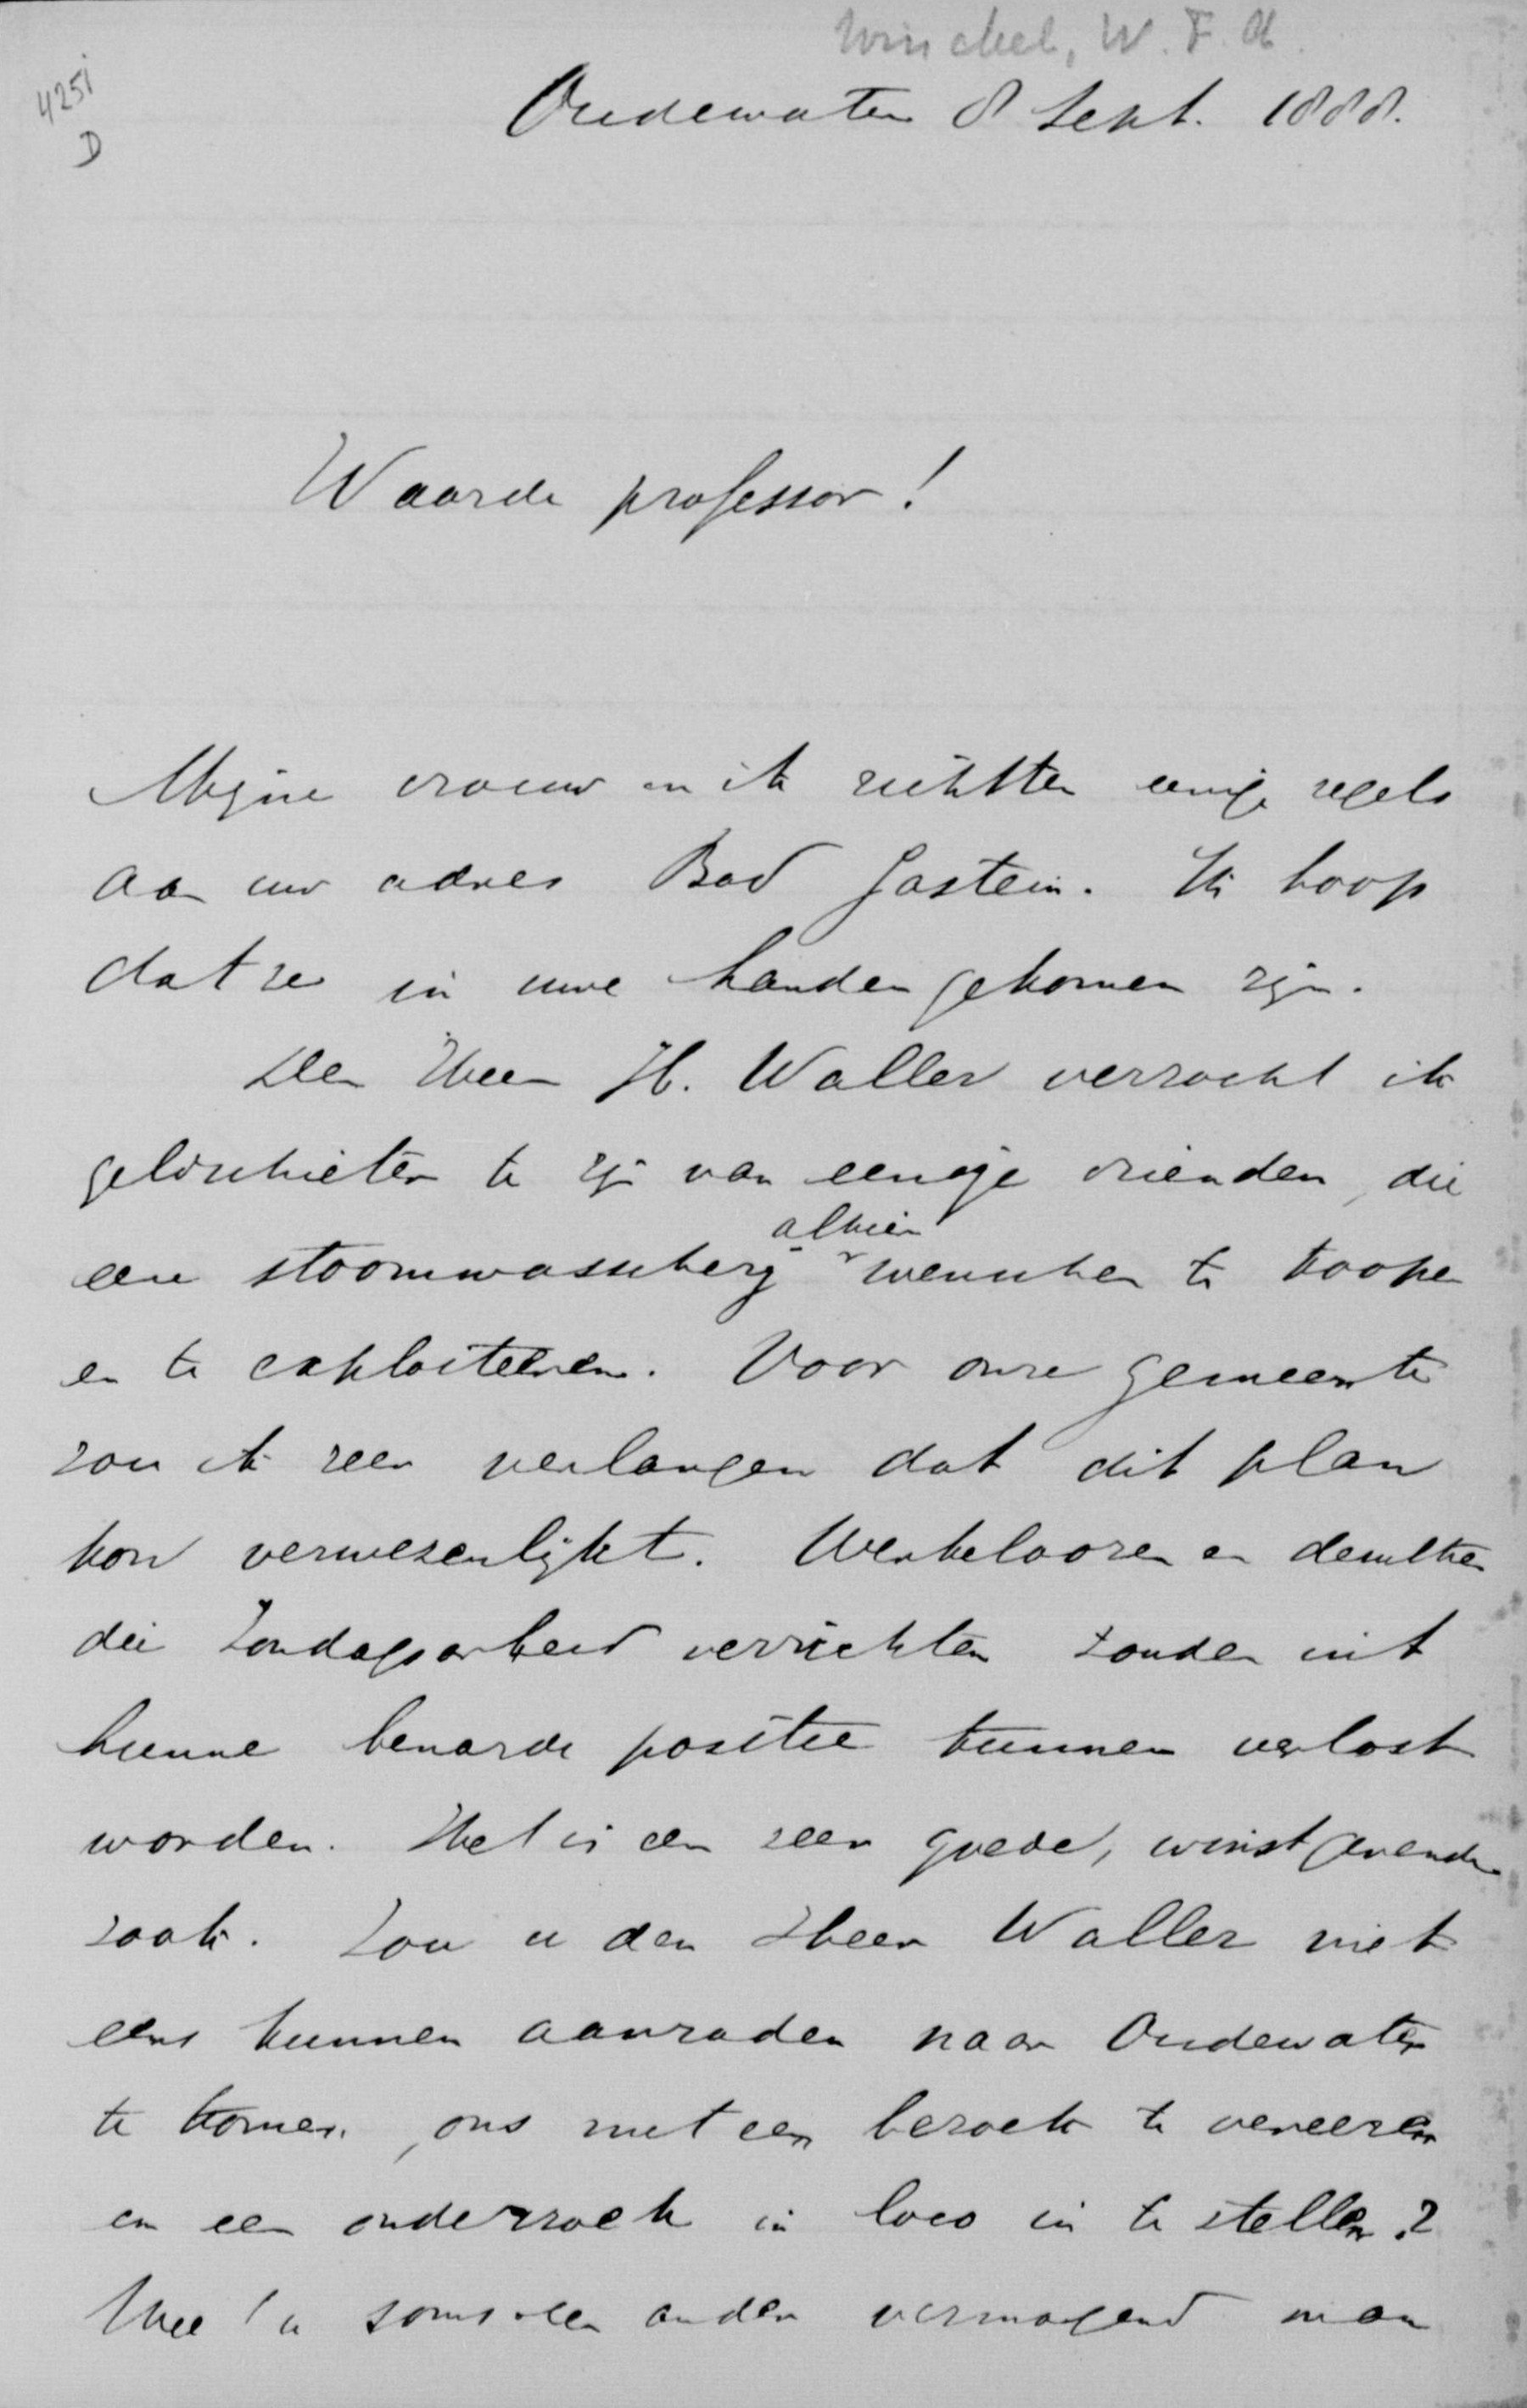 Winckel, W. F. A.
4251
D
Oudewater 8 Sept. 1888.
Waarde professor!
Mijne vrouw en ik richtten eenige regels
aan uw adres Bad Gastein. Ik hoop
dat ze in uwe handen gekomen zijn.
Den Heer H. Waller verzocht ik
geldschieter te zijn van eenige vrienden, die
alhier
een stoomwasscherij wenschen te koopen
en te exploiteeren. Voor onze gemeente
zou ik zeer verlangen dat dit plan
kon verwezenlijkt. Werkeloozen en dezulken
die Zondagsarbeid verrichten zouden uit
hunne benarde positie kunnen verlost
worden. Het is een zeer goede, winstgevende
zaak. Zou u den Heer Waller niet
eens kunnen aanraden naar Oudewater
te komen, ons met een bezoek te vereeren
en een onderzoek in loco in te stellen?
Weet u soms een ander vermogend man